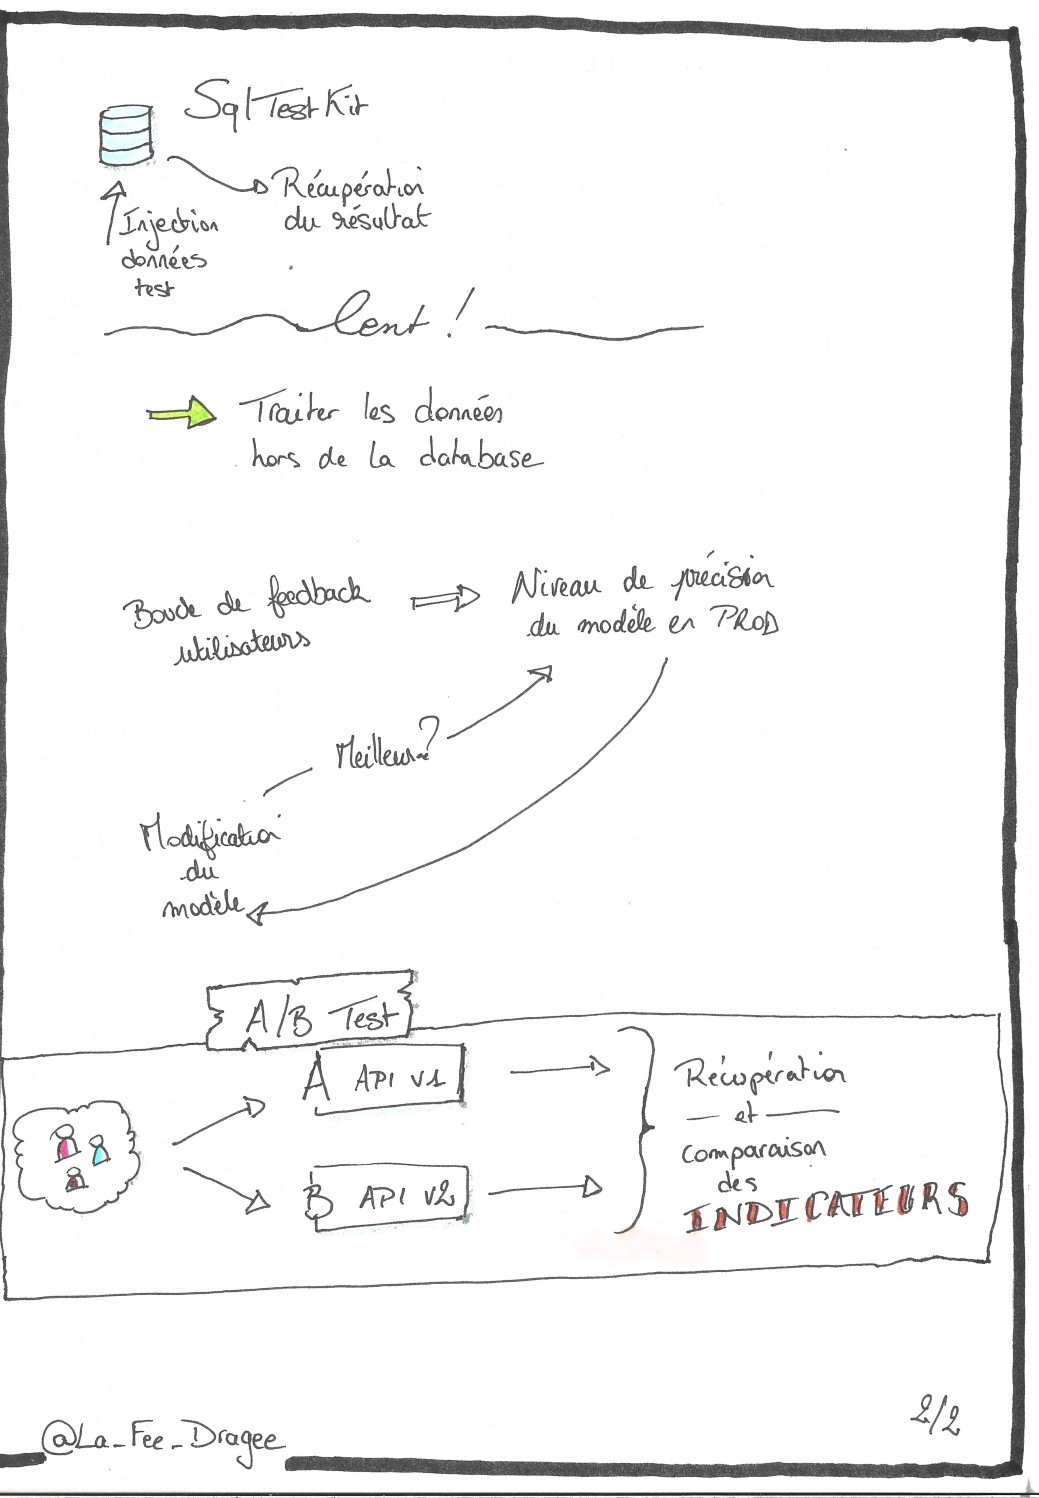 SqlTestKit
Récupération
du résultat
Injection
données
test
lent !
Traiter les données
hors de la database
Boucle de feedback
utilisateurs
Niveau de précision
du modèle en PROD
Meilleur?
Modification
du
modèle
A/B Test
A API v1
B API v2
Récupération
et
comparaison
des
INDICATEURS
2/2
@La_Fee_Dragee